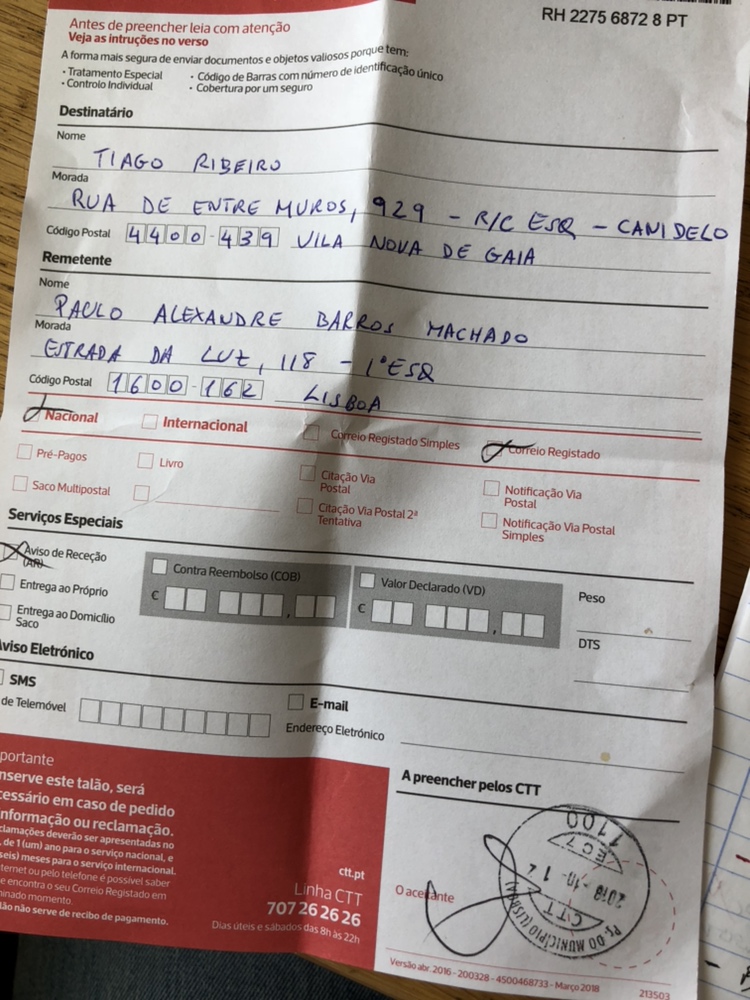 RH 2275 6872 8 PT
Antes de preencher leia com atenção
Veja as intruções no verso
A forma mais segura de enviar documentos e objetos valiosos porque tem:
· Tratamento Especial · Código de Barras com número de identificação único
· Controlo Individual · Cobertura por um seguro
Destinatário
Nome
TIAGO RIBEIRO
Morada
RUA DE ENTRE MUROS, 929 - R/C ESQ - CANIDELO
Código Postal 4400-439 VILA NOVA DE GAIA
Remetente
Nome
PAULO ALEXANDRE BARROS MACHADO
Morada
ESTRADA DA LUZ, 118 - 1º ESQ
Código Postal 1600-162 LISBOA
Nacional Internacional Correio Registado Simples Correio Registado
Pré-Pagos Livro Citação Via Postal Notificação Via Postal
Saco Multipostal Citação Via Postal 2ª Tentativa Notificação Via Postal Simples
Serviços Especiais
Aviso de Receção (AR) Contra Reembolso (COB) Valor Declarado (VD) Peso
Entrega ao Próprio € , € ,
Entrega ao Domicílio Saco DTS
Aviso Eletrónico
SMS E-mail
de Telemóvel Endereço Eletrónico
portante
nserve este talão, será
cessário em caso de pedido
nformação ou reclamação.
clamações deverão ser apresentadas no
, de 1 (um) ano para o serviço nacional, e
seis) meses para o serviço internacional.
ternet ou pelo telefone é possível saber
e encontra o seu Correio Registado em
minado momento.
lão não serve de recibo de pagamento.
ctt.pt
Linha CTT
707 26 26 26
Dias úteis e sábados das 8h às 22h
A preencher pelos CTT
O aceitante
1100
2018-10-12
CTT
PÇ. DO MUNICÍPIO (LISBOA)
Versão abr. 2016 - 200328 - 4500468733 - Março 2018
213503